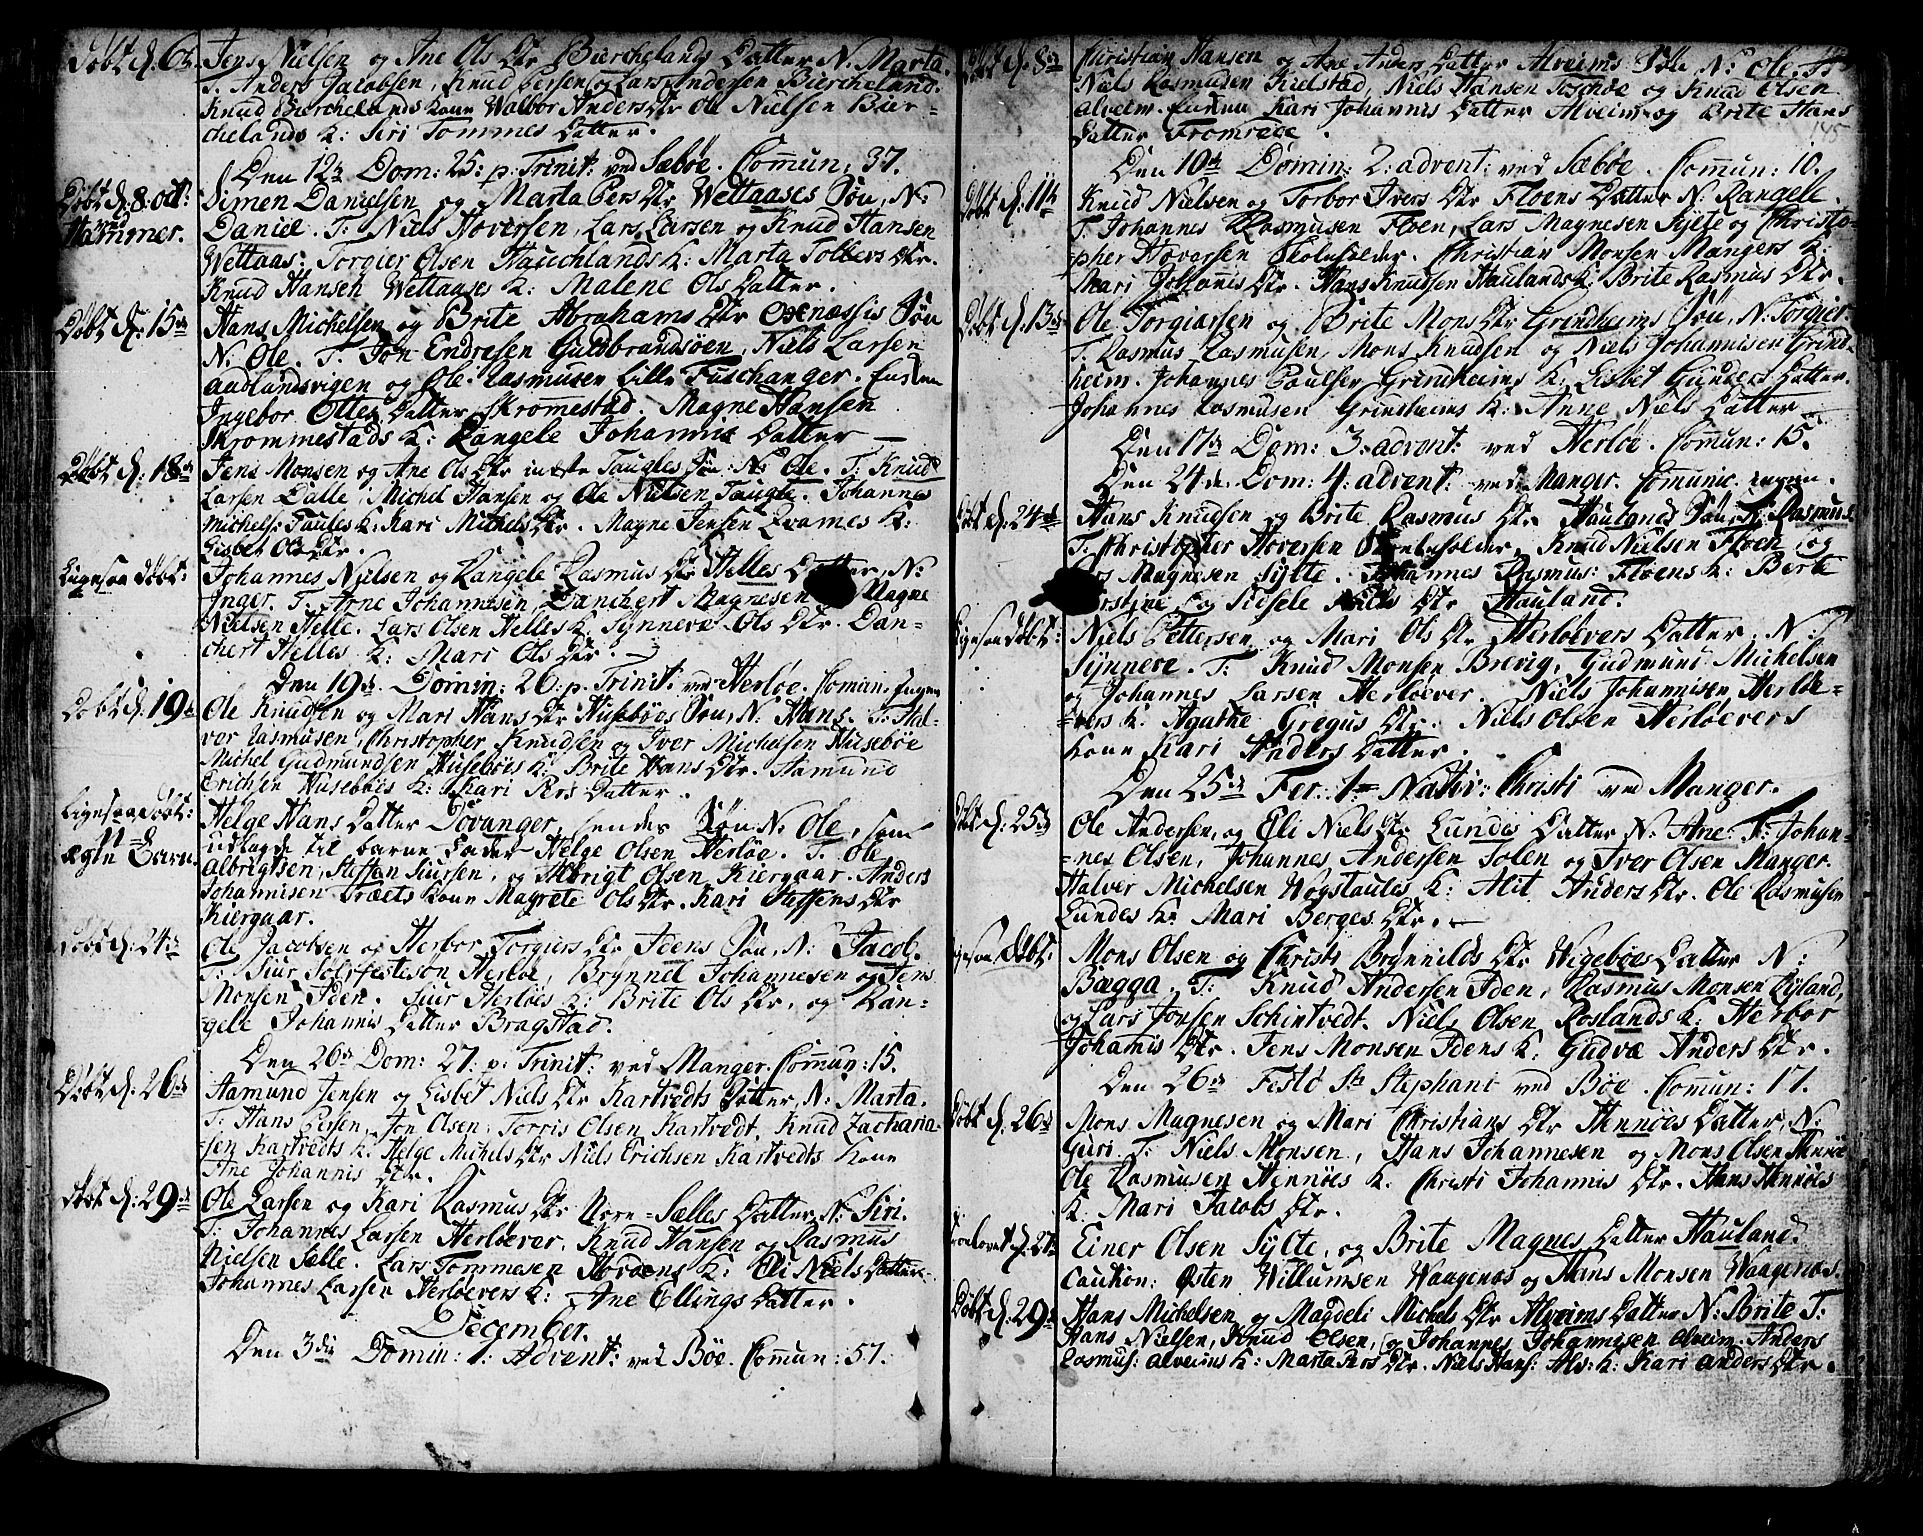 Døbt d. 6te Jens Nielsen og Ane Ols Dtr Bierchelands Datter N. Marta.
T. Anders Jacobsen, Knud Persen og Lars Andersen Biercheland.
Knud Bierchelands kone Walbor Anders Dtr Ole Nielsen Bier-
chelands K: Siri Tommes Datter.
Den 12te Dom: 25: p. Trinit: ved Sæbøe. Comun: 37.
Døbt d. 8 oct: Simen Danielsen og Marta Pers Dtr Wettaases Søn, N:
Hammer. Daniel. T: Niels Hoversen, Lars Larsen og Knud Hansen
Wettaas: Torgier Olsen Hauchlands K: Marta Tollevs Dtr.
Knud Hansen Wettaases K: Malene Ols Datter.
Døbt d. 15de Hans Michelsen og Brite Abrahams Dtr Oxenæssis Søn
N: Ole. T: Jon Endresen Guldbrandsøen, Niels Larsen
aadlandsvigen og Ole Rasmusen Lille Fuschanger.
Ingebor Ottes Datter Skromestad. Magne Hansen
Skrommestads K: Rangele Johannis Datter —
Døbt d. 18de Jens Monsen og Ane Ols Dtr Taugles Søn: N: Ole. T: Knud
Larsen Dalle, Michel Hansen og Ole Nielsen Taugle. Johannes
Michels: Taules K: Kari Michels Dtr. Magne Jensen Qvames K:
Lisbet Ols Dtr.
Ligesaa Døbt: Johannes Nielsen og Rangele Rasmus Dtr Helles Datter, N:
Inger. T. Arne Johannesen, Danchert Magnesen Magne
Nielsen Helle. Lars Olsen Helles K. Synneve Ols Dtr. Dan-
chert Helles K: Mari Ols Dtr.
Den 19de. Domin: 26: p. Trinit: ved Herløe. Comun: Ingen
Døbt d. 19de Ole Knudsen og Mari Hans Dtr Husebøes Søn, N: Hans. T: Hal-
vor Rasmusen, Christopher Knudsen og Iver Michelsen Husebøe
Michel Gudmundsen Husebøes K: Brite Hans Dtr. Hamund
Erichsen Husebøes K: Kari Pers Datter.
Ligesaa Døbt: Helge Hans Datter Tovanger, hendes Søn N: Ole, som
ægte Barn. udlagde til barne Fader Helge Olsen Herløe. T. Ole
Albrigtsen, Steffen Siursen, og Albrigt Olsen Kiergaar. Anders
Johannisen Træets kone Magrete Ols Dtr. Kari Steffens Dtr
Kiergaar.
Døbt d. 24de Ole Jacobsen og Herbor Torgiers Dtr Idens Søn, N: Jacob.
T: Siur Solfesteson Herløe, Brynnel Johannesen og Jens
Monsen Iden. Siur Herløes K: Brite Ols Dtr, og Ran-
gele Johannis Datter Bragstad.
Den 26de Dom: 27: p: Trinit: ved Manger. Comun: 15.
Døbt d. 26de Hamund Jensen og Lisbet Niels Dtr Kartvedts Datter, N: Marta.
T: Hans Persen, Jon Olsen, Torris Olsen Kartvedt. Knud Zacharia-
sen Kartvedts K: Helge Michels Dtr Niels Erichsen Kartvedts Kone
Ane Johannis Dtr.
Døbt d. 29de Ole Larsen og Kari Rasmus Dtr Norn-Sælles Datter N: Siri.
T: Johannes Larsen Herløevær, Knud Hansen og Rasmus
Nielsen Sælle. Lars Tommesen Hordens K: Eli Niels Datter.
Johannes Larsen Herløevers K: Ane Ellings Datter.
December.
Den 3die Domin: 1: Advent: ved Bøe. Comun: 57.
Døbt d. 8de Christian Hansen og Ane Anders Datter Alveims Søn N: Ole. T:
Niels Rasmusen Kielstad, Niels Hansen Toschøe og Knud Olsen
alveim. Kari Johannis Datter Alveim og Brite Hans
Datter Fromrøge.
145
Den 10de Domin: 2: advent: ved Sæbøe. Comun: 10.
Døbt d. 11te Knud Nielsen og Torbor Ivers Dtr Floens Datter N: Rangele.
T. Johannes Rasmusen Floen, Lars Magnesen Sylte og Christo-
pher Hoversen Skoleholder. Christian Monsen Mangers K:
Mari Johannis Dtr. Hans Knudsen Haulands K: Brite Rasmus Dtr.
Døbt d. 13de Ole Torgiersen og Brite Mons Dtr Grindheims Søn, N: Torgier.
T. Rasmus Rasmusen, Mons Knudsen og Niels Johannisen Grind-
heim. Johannes Poulsen Grindheims K: Lisbet Gunders Datter.
Johannes Rasmusen Grindheims K: Anne Niels Datter
Den 17de Dom: 3: advent: ved Herløe. Comun: 15.
Den 24de. Dom: 4: advent: ved Manger. Comunic. ingen.
Døbt d. 24de Hans Knudsen og Brite Rasmus Dtr Haulands Søn N: Rasmus
T. Christopher Hoversen Skoleholder, Knud Nielsen Floen og
Lars Magnesen Sylte. Johannes Rasmus: Floens K: Berte
og Sidsele Niels Dtr Hauland.
Ligesaa Døbt: Niels Pettersen og Mari Ols Dtr Herløevers Datter, N:
Synneve. T: Knud Monsen Brevig, Gudmund Michelsen
og Johannes Larsen Herløever. Niels Johannisen Herløe-
vers K: Agathe Gregus Dtr. Niels Olsen Herløevers
kone Kari Anders Datter.
Den 25de Fer: 1me Nativ: Christi ved Manger.
Døbt d. 25de Ole Andersen, og Eli Niels Dtr Lundes Datter N: Ane. T: Johan-
nes Olsen, Johannes Andersen Solen og Iver Olsen Manger.
Halver Michelsen Wogstaules K: Alit Anders Dtr. Ole Rasmusen
Lundes K: Mari Berges Dtr.
Ligesaa Døbt. Mons Olsen og Christi Brynnilds Dtr Wigebøes Datter N:
Bagga. T: Knud Andersen Iden, Rasmus Monsen Ryland,
og Lars Jonsen Schintvedt. Niels Olsen Roslands K: Herbor
Johannis Dtr. Jens Monsen Idens K: Gudvæ Anders Dtr.
Den 26de Festo St: Stephani ved Bøe. Comun: 17.
Døbt d. 26de Mons Magnesen og Mari Christians Dtr Hennøes Datter, N:
Guri. T: Niels Monsen, Hans Johannesen og Mons Olsen Hennøe
Ole Rasmusen Hennøes K. Christi Johannis Dtr. Hans Hennøes
K. Mari Jacobs Dtr.
Troelovet d. 27de Einer Olsen Sylte, og Brite Magnes Datter Hauland.
Caution: Østen Willumsen Waagenes og Hans Monsen Waagenes.
Døbt d. 29de Hans Michelsen og Magdeli Michels Dtr Alveims Datter N: Brite T:
Hans Nielsen, Knud Olsen, og Johannes Johannisen alveim. Anders
Rasmus: alveims K: Marta Pers Dtr. Niels Hans: Alv: K: Kari anders Dtr.